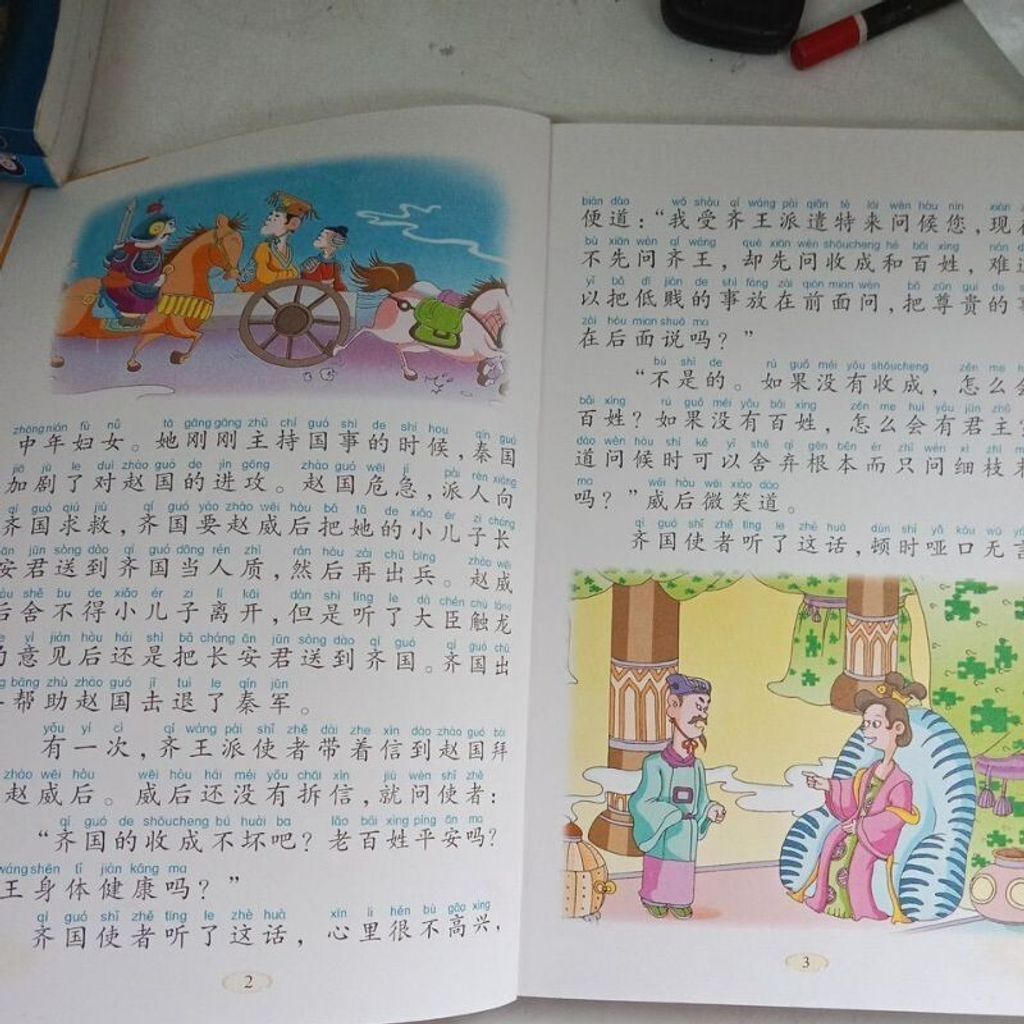 zhōng nián fù nǚ tā gāng gāng zhǔ chí guó shì de shí hou qín guó
中年妇女。她刚刚主持国事的时候,秦国
jiā jù le duì zhào guó de jìn gōng zhào guó wēi jí pài rén xiàng
加剧了对赵国的进攻。赵国危急,派人向
qí guó qiú jiù qí guó yào zhào wēi hòu bǎ tā de xiǎo ér zi cháng
齐国求救,齐国要赵威后把她的小儿子长
ān jūn sòng dào qí guó dāng rén zhì rán hòu zài chū bīng zhào wēi
安君送到齐国当人质,然后再出兵。赵威
hòu shě bu de xiǎo ér zi lí kāi dàn shì tīng le dà chén chù lóng
后舍不得小儿子离开,但是听了大臣触龙
yì jiàn hòu hái shì bǎ cháng ān jūn sòng dào qí guó qí guó chū
的意见后还是把长安君送到齐国。齐国出
bāng zhù zhào guó jī tuì le qín jūn
帮助赵国击退了秦军。
yǒu yí cì qí wáng pài shǐ zhě dài zhe xìn dào zhào guó bài
有一次,齐王派使者带着信到赵国拜
zhào wēi hòu wēi hòu hái méi yǒu chāi xìn jiù wèn shǐ zhě
赵威后。威后还没有拆信,就问使者:
qí guó de shōucheng bú huài ba lǎo bǎi xìng píng ān ma
“齐国的收成不坏吧?老百姓平安吗?
wáng shēn tǐ jiàn kāng ma
王身体健康吗?”
qí guó shǐ zhě tīng le zhè huà xīn li hěn bù gāo xìng
齐国使者听了这话,心里很不高兴,
2
biàn dào wǒ shòu qí wáng pài qiǎn tè lái wèn hòu nín xiàn
便道:“我受齐王派遣特来问候您,现
bù xiān wèn qí wáng què xiān wèn shōucheng hé bǎi xìng nán
不先问齐王,却先问收成和百姓,难
yǐ bǎ dī jiàn de shì fàng zài qián miàn wèn bǎ zūn guì de
以把低贱的事放在前面问,把尊贵的
zài hòu miàn shuō ma
在后面说吗?”
bú shì de rú guǒ méi yǒu shōucheng zěn me
“不是的。如果没有收成,怎么
bǎi xìng rú guǒ méi yǒu bǎi xìng zěn me huì yǒu jūn zhǔ
百姓?如果没有百姓,怎么会有君主?
dào wèn hòu shí kě yǐ shě qì gēn běn ér zhǐ wèn xì zhī
道问候时可以舍弃根本而只问细枝
ma wēi hòu wēi xiào dào
吗?”威后微笑道。
qí guó shǐ zhě tīng le zhè huà dùn shí yǎ kǒu wú
齐国使者听了这话,顿时哑口无
3